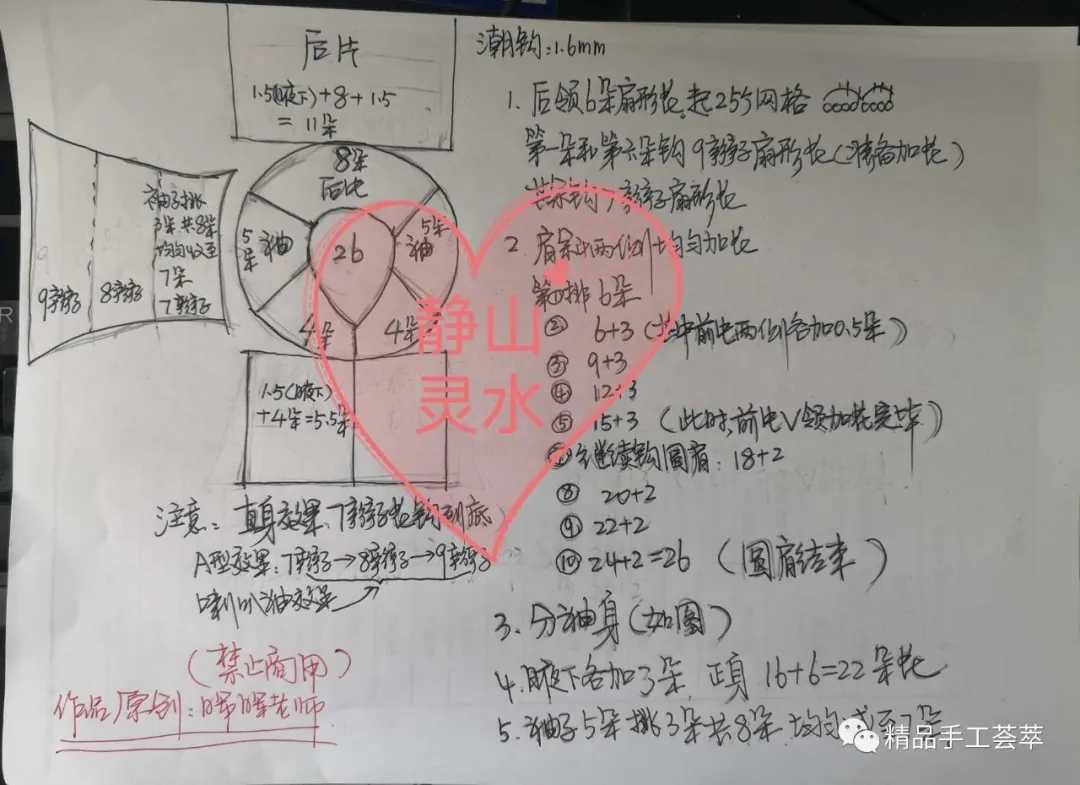 后片
1.5(腋下)+8+1.5
= 11朵
8朵
后片
5朵
袖
26
5朵
袖
4朵
4朵
1.5(腋下)
+4朵=5.5朵
袖子挑
3朵共8朵
均匀收至
7朵
7辫子
8辫子
9辫子
注意: 直身效果、7辫子花钩到底
A型效果:7辫子→8辫子→9辫子
喇叭袖效果
(禁止商用)
作品原创:晖晖老师
潮钩:1.6mm
1. 后领6朵扇形花,起25个网格
第一朵和第六朵钩9辫子扇形花(准备加花)
其余钩7辫子扇形花
2. 肩朵从两侧均匀加花
第1排 6朵
② 6+3 (其中前片两侧各加0.5朵)
③ 9+3
④ 12+3
⑤ 15+3 (此时,前片V领加花完毕)
继续钩圆肩:18+2
⑧ 20+2
⑨ 22+2
⑩ 24+2=26 (圆肩结束)
3. 分袖身(如图)
4. 腋下各加3朵, 正身 16+6=22朵花
5. 袖子5朵挑3朵共8朵,均匀减至7朵
静山
灵水
精品手工荟萃